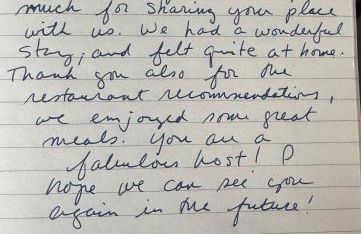 much for sharing your place
with us. We had a wonderful
stay, and felt quite at home.
Thank you also for the
restaurant recommendations,
we enjoyed some great
meals. You are a
fabulous host! I
hope we can see you
again in the future!